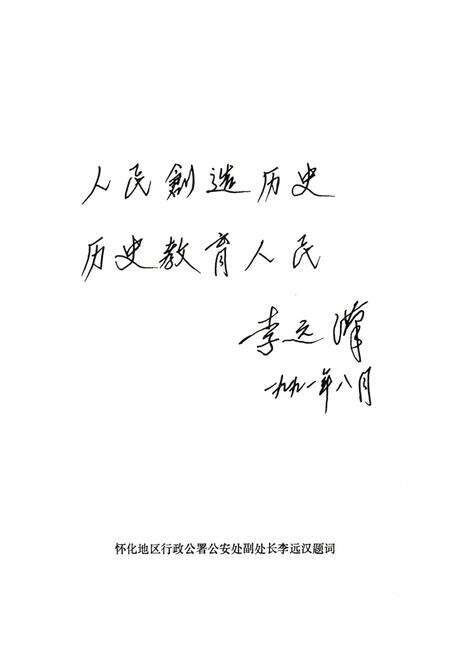 人民創造历史
历史教育人民
李远漢
一九九一年八月
怀化地区行政公署公安处副处长李远汉题词